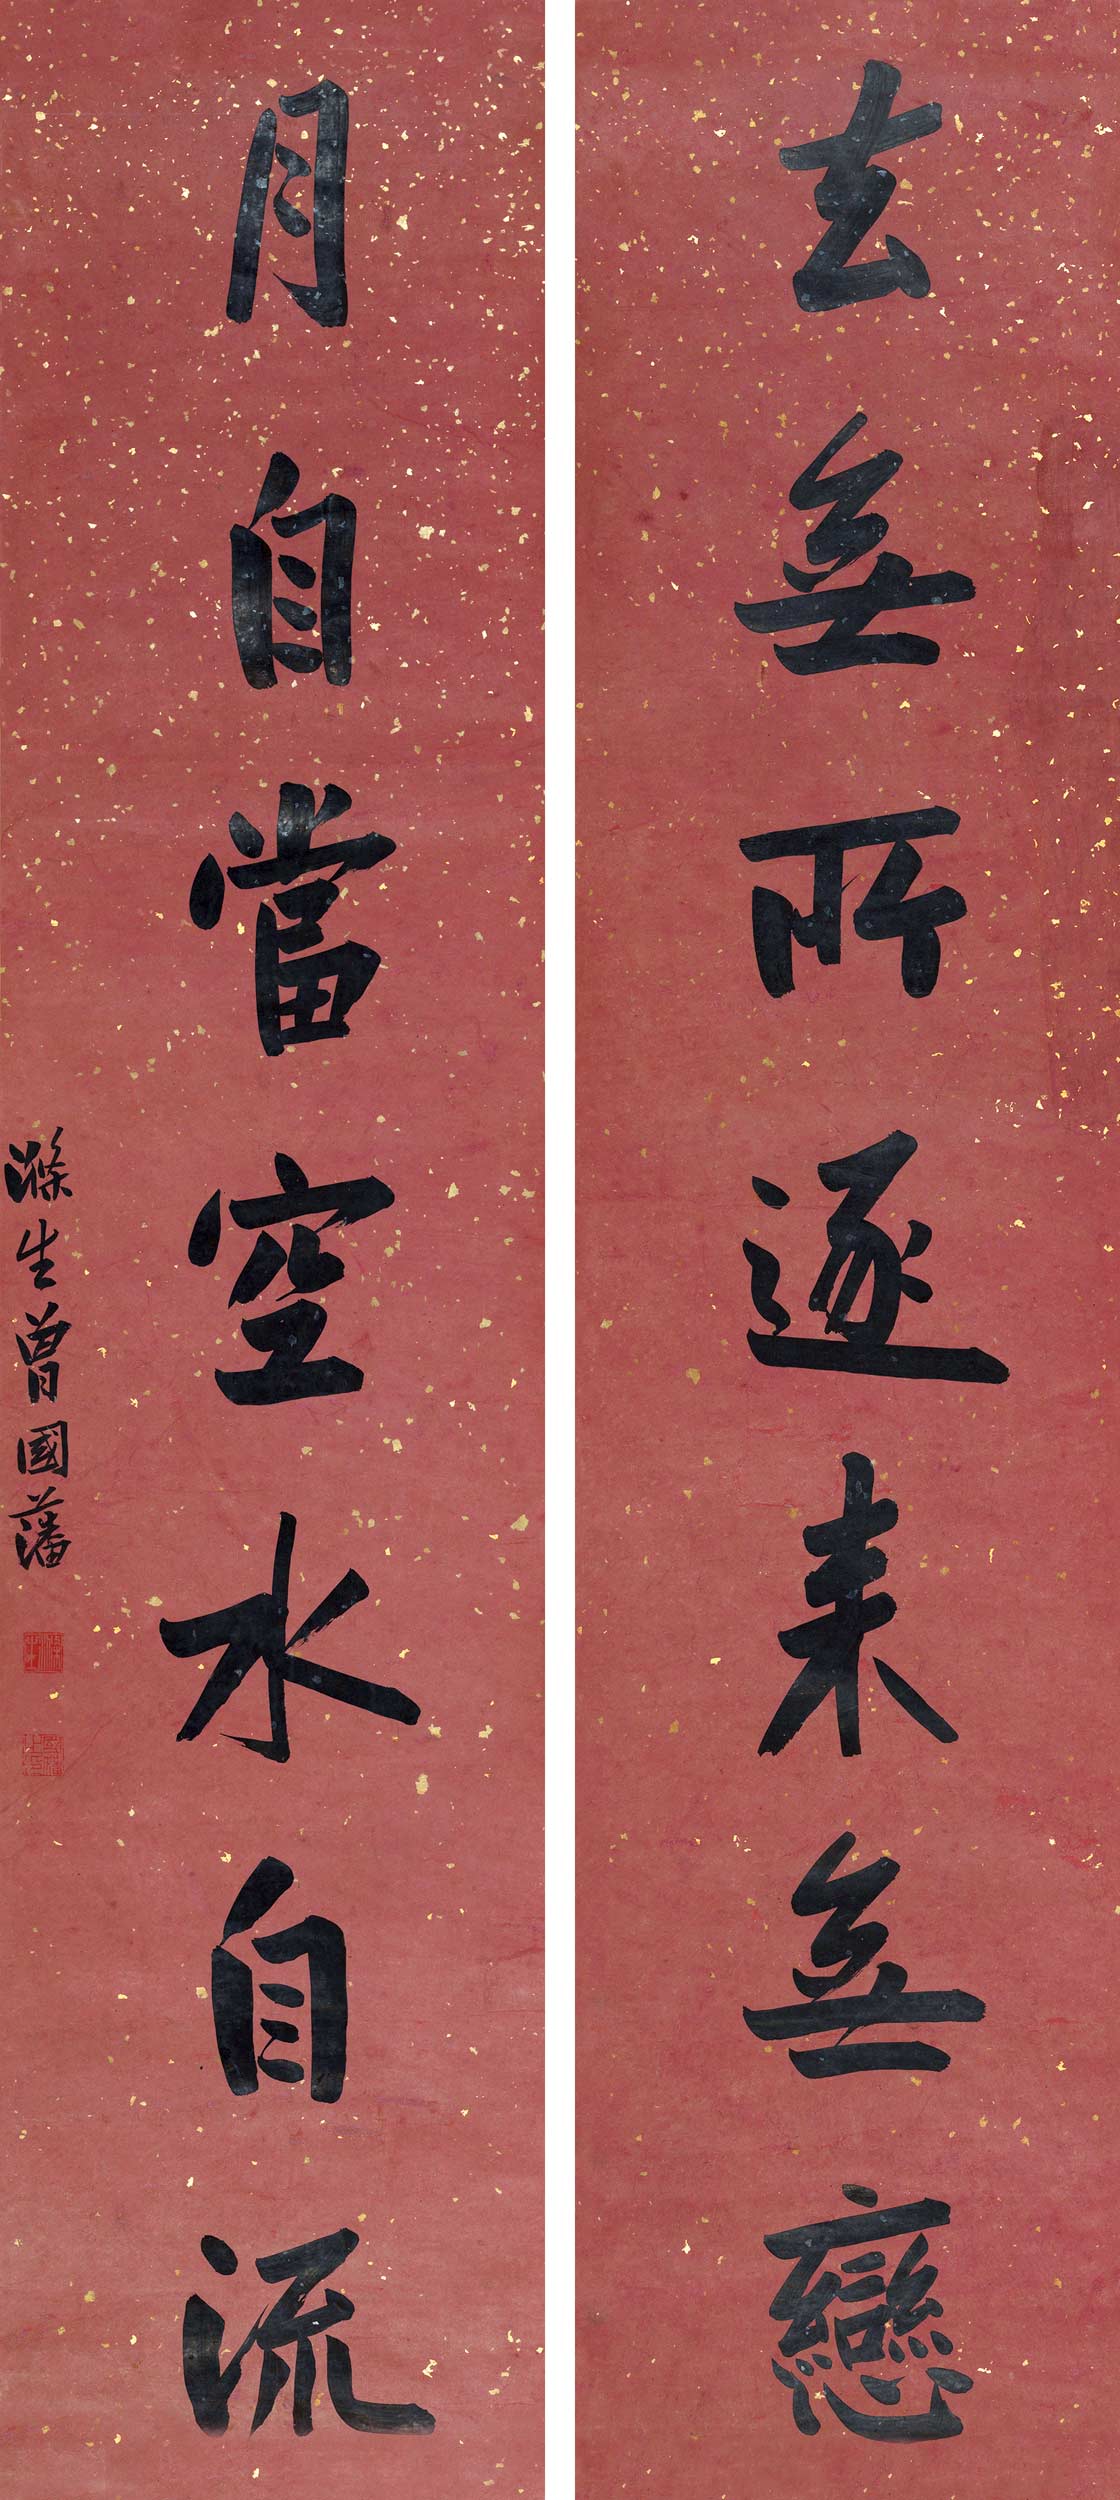 去無所逐来無戀
月自當空水自流
滌生曾國藩